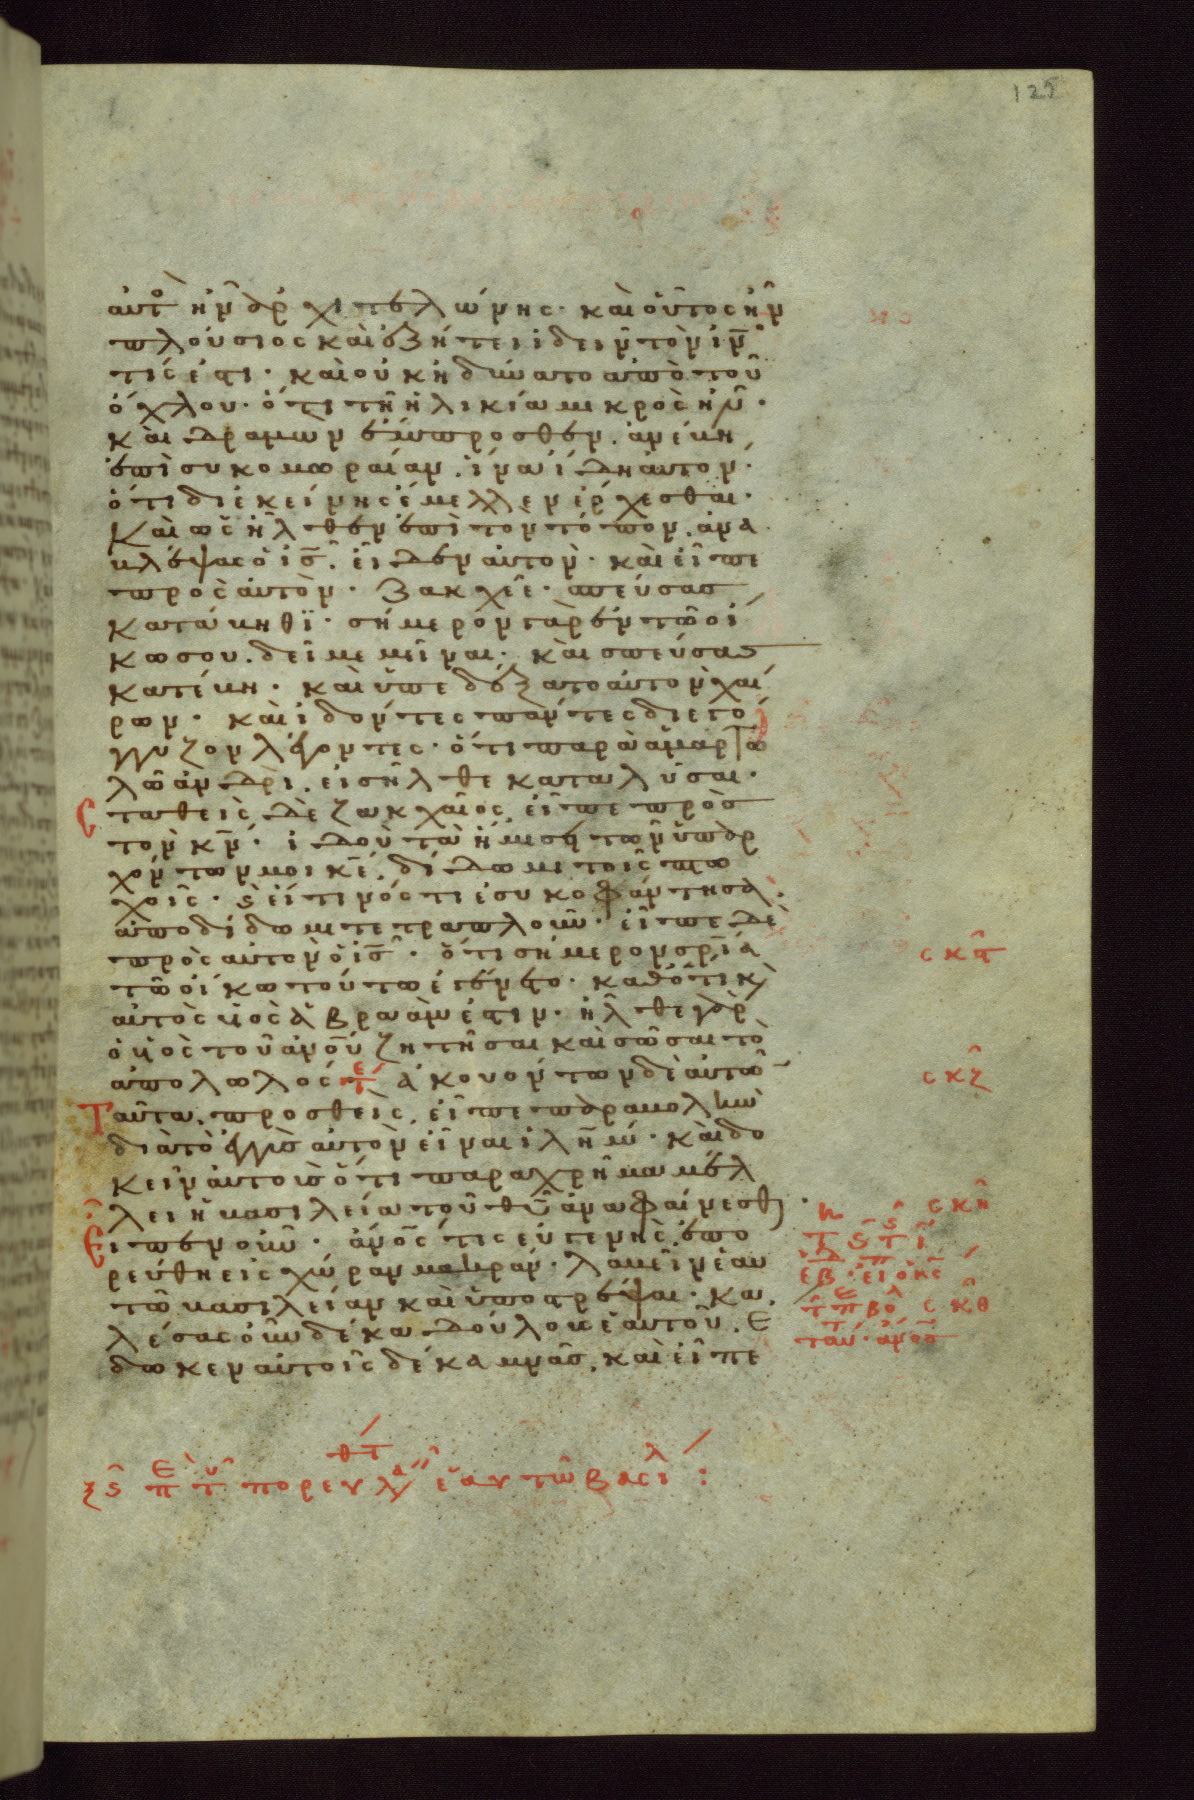 125
αὐτὸ ἦν ἀρχιτελώνης· καὶ οὗτος ἦν
πλούσιος καὶ ἐζήτει ἰδεῖν τὸν ιν̅
τίς ἐστι· καὶ οὐκ ἠδύνατο ἀπὸ τοῦ
ὄχλου· ὅτι τῆ ἡλικία μικρὸς ἦν·
καὶ δραμὼν ἔμπροσθεν, ἀνέβη
ἐπὶ συκομωραίαν, ἵνα ἴδη αὐτόν·
ὅτι δι ἐκείνης ἔμελλεν ἔρχεσθαι·
Καὶ ὡς ἦλθεν ἐπὶ τὸν τόπον, ἀνα
βλέψας ὁ ις̅, εἶδεν αὐτὸν· καὶ εἶπε
πρὸς αὐτὸν· Ζακχεῖε· σπεύσας
κατάβηθϊ· σήμερον γὰρ ἐν τῶ οἴ
κω σου, δεῖ με μεῖναι· καὶ σπεύσας
κατέβη· καὶ ὑπεδέξατο αὐτὸν χαί
ρων· καὶ ἰδόντες πάντες διεγό
γγυζον λέγοντες· ὅτι παρὰ ἁμαρτω
λῶ ἀνδρὶ, εἰσῆλθε καταλῦσαι·
Σταθεὶς δὲ ζακχαῖος, εἶπε πρὸς
τὸν κν̅· ἰδοὺ τὰ ἡμίση τῶν ὑπαρ
χόντων μοι κε̅, δίδωμι τοῖς πτω
χοῖς· ϛ εἴ τινός τι ἐσυκοφάντησα,
ἀποδίδωμι τετραπλοῦν· εἶπε δὲ
πρὸς αὐτὸν ὁ ις̅· ὅτι σήμερον σρ̅ία
τῶ οἴκω τούτω ἐγένετο· καθότι κ
αὐτὸς υἱὸς ἀβραάμ ἐστιν· ἦλθε γὰρ
ὁ υἱὸς τοῦ ἀν̅ου ζητῆσαι καὶ σῶσαι τὸ
ἀπολωλός τε ἀκουόντων δὲ αὐτῶν
Ταῦτα, προσθεὶς, εἶπε παραβολὴν
διὰ τὸ ἐγγὺς αὐτὸν εἶναι ιλη̅μ· καὶ δο
κεῖν αὐτοὺς ὅτι παραχρῆμα μέλ
λει ἡ βασιλεία τοῦ θυ̅ ἀναφαίνεσθαι·
Εἶπεν οὖν· ἀν̅ος τις εὐγενὴς, ἐπο
ρεύθη εἰς χώραν μακράν· λαβεῖν ἑαυ
τῶ βασιλείαν καὶ ὑποστρέψαι· κα
λέσας οὖν δέκα δούλους ἑαυτοῦ, ἔ
δωκεν αὐτοῖς δέκα μνᾶς, καὶ εἶπε
σκϛ
σκζ
σκη
σκθ
πορευ λα ἑαυτῶ βασι :